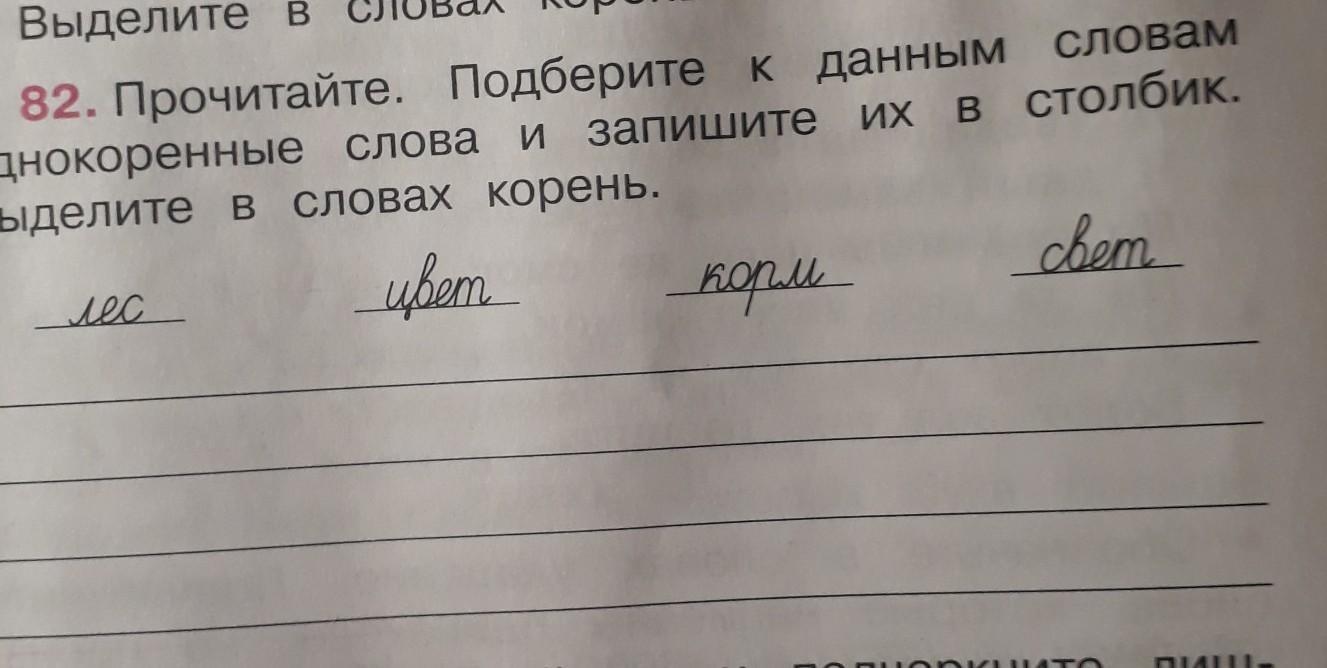 Выделите в словах корень
82. Прочитайте. Подберите к данным словам
днокоренные слова и запишите их в столбик.
ыделите в словах корень.
лес цвет корм свет
подчеркните